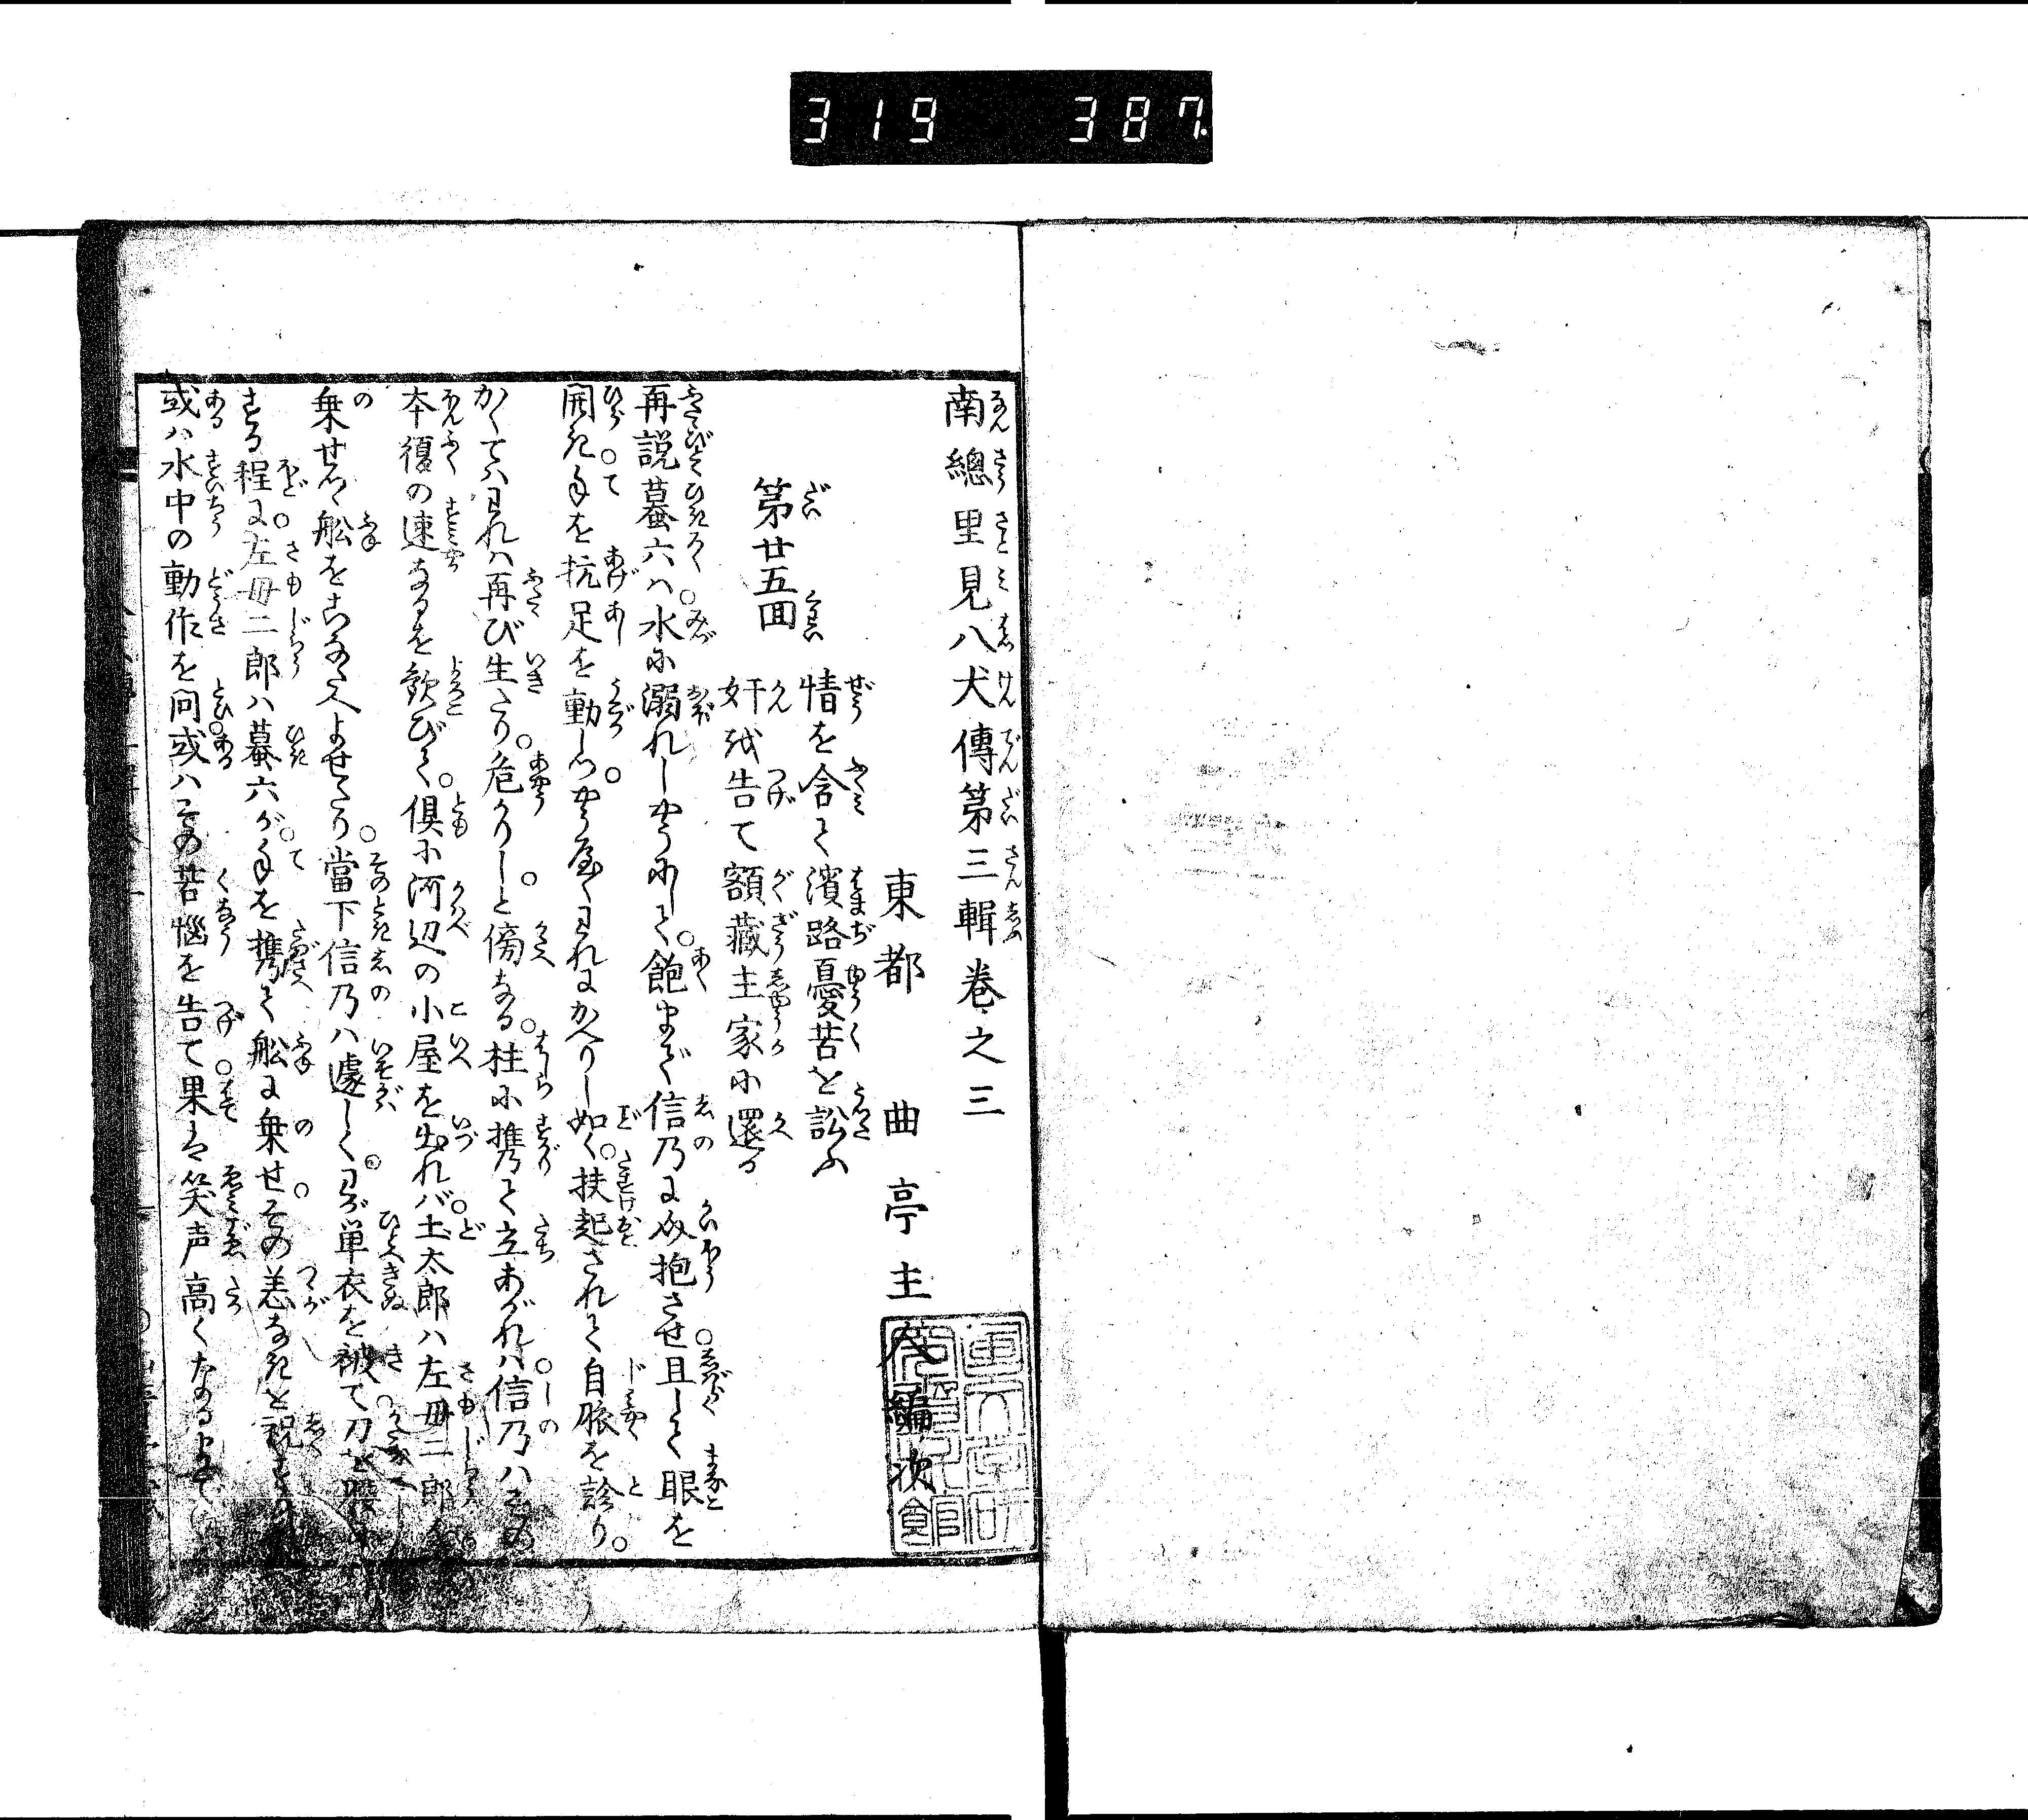 319 387
南總里見八犬傳第三輯巻之三
東都 曲亭主人編次
第廿五回
情を含て濱路憂苦を訟ふ
奸を告て額藏主家に還る
再説蟇六ハ。水に溺れしやうにして。飽まで信乃に介抱させ。且して眼を
開き手を抗足を動しつ。やうやくわれにかへりし如く。扶起されて自脈を診り。
かくてハわれハ再び生たり。危かりし。と傍なる。柱に携て立あがれハ。信乃ハその
本復の速なるを歓びて。倶に河辺の小屋を出れバ。土太郎ハ左母二郎を
乗せて舩をこなたへよせたり。當下信乃ハ遽しく。わが単衣を被て。刀を腰に
する程に。左母二郎ハ蟇六が。手を携て舩に乗せ。その恙なきを祝する
或ハ水中の動作を問。或ハその苦惱を告て。果は笑声高くなるまで